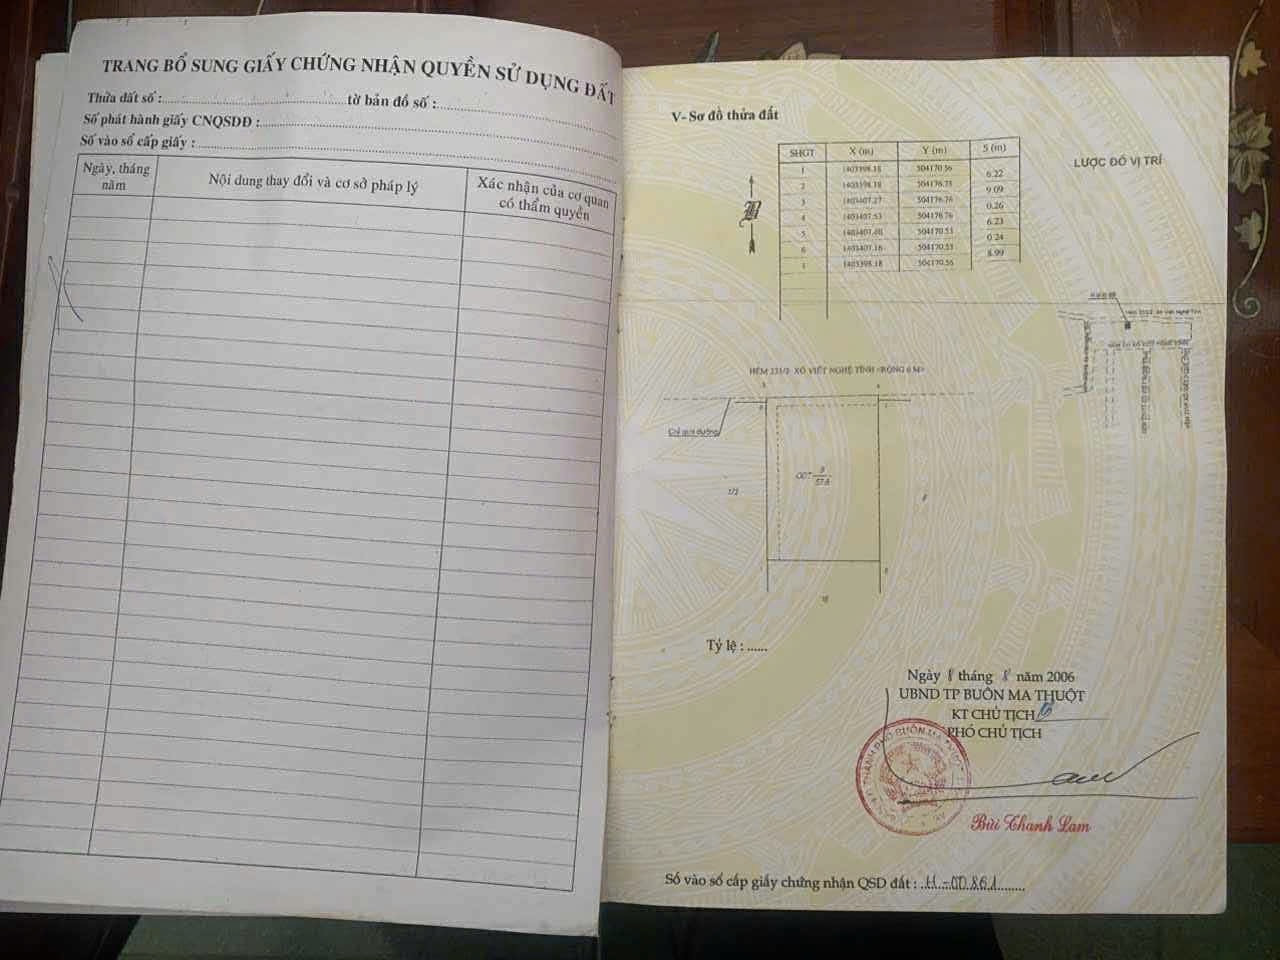 TRANG BỔ SUNG GIẤY CHỨNG NHẬN QUYỀN SỬ DỤNG ĐẤT
Thửa đất số : tờ bản đồ số :
Số phát hành giấy CNQSDĐ :
Số vào sổ cấp giấy :
Ngày, tháng năm | Nội dung thay đổi và cơ sở pháp lý | Xác nhận của cơ quan có thẩm quyền
V- Sơ đồ thửa đất
LƯỢC ĐỒ VỊ TRÍ
SHGT X (m) Y (m) S (m)
1 1403398.18 504170.56
6.22
2 1403398.18 504176.78
9.09
3 1403407.27 504176.76
0.26
4 1403407.53 504176.76
6.23
5 504170.53
0.24
6 1403407.16 504170.53
8.99
1 1403398.18 504170.56
HẺM 231/3 XÔ VIẾT NGHỆ TĨNH <RỘNG 6 M>
Chỉ giới đường
ODT 9
57.8
Tỷ lệ : ......
Ngày 8 tháng 8 năm 2006
UBND TP BUÔN MA THUỘT
KT CHỦ TỊCH
PHÓ CHỦ TỊCH
Bùi Thanh Lam
Số vào sổ cấp giấy chứng nhận QSD đất : H-00861